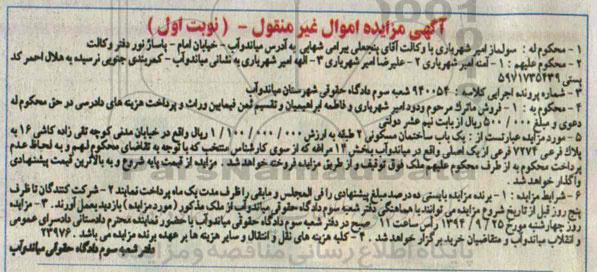 آگهی مزایده اموال غیر منقول - (نوبت اول)
۱- محکوم له: سولماز امیر شهریاری با وکالت آقای پنجعلی بیرامی شهابی به آدرس میاندوآب - خیابان امام - پاساژ نور دفتر وکالت
۲- محکوم علیهم: ۱- آمنه امیر شهریاری ۲- علیرضا امیر شهریاری ۳- الهه امیر شهریاری به نشانی میاندوآب - کمربندی جنوبی نرسیده به هلال احمر کد
پستی ۵۹۷۱۷۳۵۴۴۹
۳- شماره پرونده اجرایی کلاسه: ۹۴۰۰۵۴ شعبه سوم دادگاه حقوقی شهرستان میاندوآب
۴- محکوم به: ۱- فروش ماترک مرحوم ودود امیر شهریاری و فاطمه ابراهیمیان و تقسیم ثمن فیمابین وراث و پرداخت هزینه های دادرسی در حق محکوم له
دعوی و مبلغ ۵۰۰/۰۰۰ ریال از بابت نیم عشر دولتی
۵- مورد مزایده عبارتست از: یک باب ساختمان مسکونی ۲ طبقه به ارزش ۱/۱۰۰/۰۰۰/۰۰۰ ریال واقع در خیابان مدنی کوچه تقی زاده کاشی ۱۶ به
پلاک فرعی ۷۲۷۲ فرعی از یک اصلی واقع در میاندوآب بخش ۱۴ مراغه که از سوی کارشناس منتخب که با توجه به تقاضای محکوم لهم و به لحاظ عدم
پرداخت محکوم به از طرف محکوم علیهم ملک فوق توقیف و از طریق مزایده فروخته خواهد شد. مزایده از قیمت پایه شروع و به بالاترین قیمت پیشنهادی
واگذار خواهد شد.
۶- شرایط مزایده: ۱- برنده مزایده بایستی ده درصد مبلغ پیشنهادی را فی المجلس و مابقی را ظرف مدت یک ماه پرداخت نمایند ۲- شرکت کنندگان تا ظرف
پنج روز قبل از تاریخ شروع مزایده می توانند با هماهنگی دفتر شعبه سوم دادگاه حقوقی میاندوآب از ملک مذکور (مورد مزایده) بازدید بعمل آورند. ۳- مزایده
روز چهارشنبه مورخ ۱۳۹۴/۹/۲۵ رأس ساعت ۱۱ صبح در دفتر شعبه سوم دادگاه حقوقی میاندوآب با حضور نماینده محترم دادستانی دادسرای عمومی
و انقلاب میاندوآب و متقاضیان خرید برگزار خواهد شد. ۴- کلیه هزینه های نقل و انتقال و سایر هزینه ها بر عهده برنده مزایده می باشد. ۲۳۹۷۶
دفتر شعبه سوم دادگاه حقوقی میاندوآب
پایگاه اطلاع رسانی مناقصه و مزایده